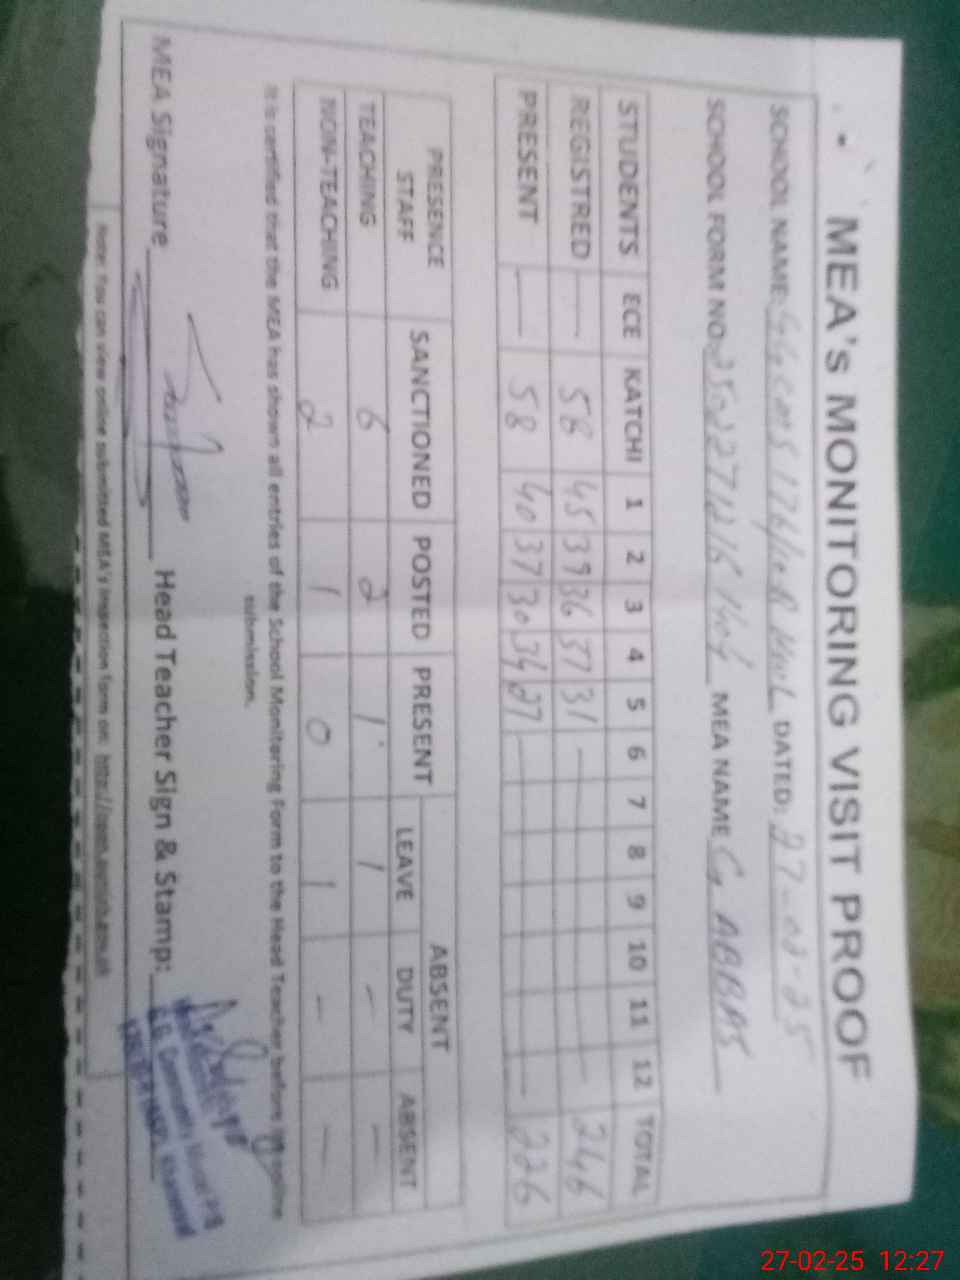 MEA's MONITORING VISIT PROOF
SCHOOL NAME: GGCMS 176/10R KWL DATED: 27-02-25
SCHOOL FORM NO. MEA NAME G ABBAS
STUDENTS ECE KATCHI 1 2 3 4 5 6 7 8 9 10 11 12 TOTAL
REGISTRED — 58 45 39 36 37 31 — 246
PRESENT — 58 40 37 30 34 27 — 226
PRESENCE STAFF SANCTIONED POSTED PRESENT ABSENT
LEAVE DUTY ABSENT
TEACHING 6 2 1 1 - -
NON-TEACHING 2 1 0 1 - -
It is certified that the MEA has shown all entries of the School Monitoring Form to the Head Teacher before online
submission.
MEA Signature Head Teacher Sign & Stamp:
G.G. Community Model P/S
Khanewal
Note: You can view online submitted MEA's inspection form on:
27-02-25 12:27